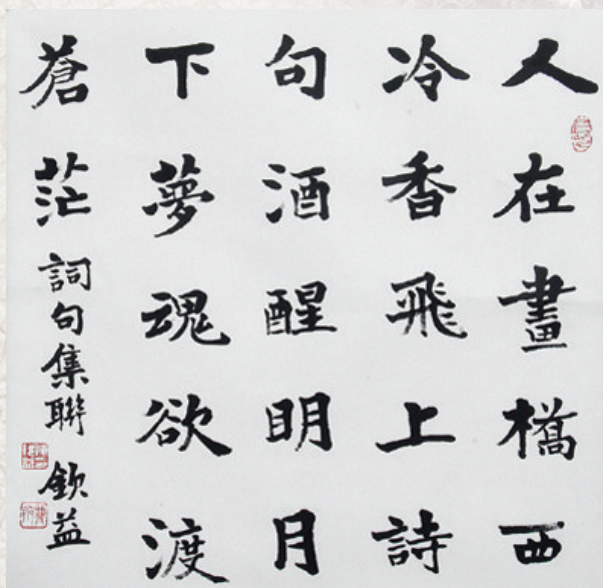 人在畫橋西
冷香飛上詩
句酒醒明月
下夢魂欲渡
蒼茫詞句集聯 欽益